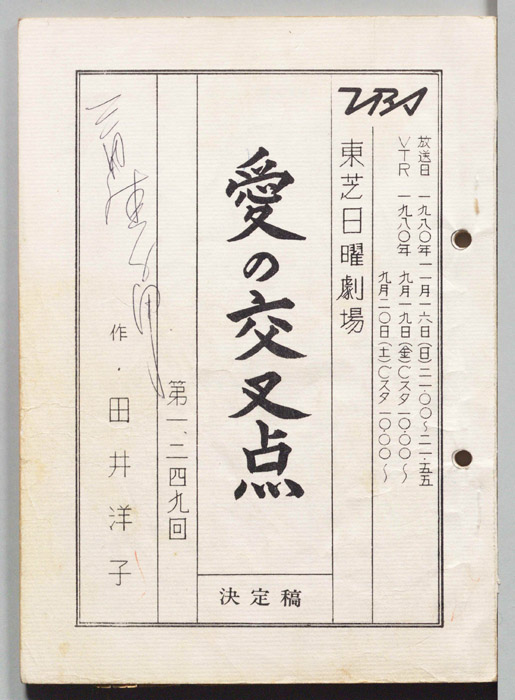 TBS
放送日 一九八〇年一一月一六日(日)二一・〇〇～二一・五五
VTR 一九八〇年 九月一九日(金)Cスタ一〇・〇〇～
九月二〇日(土)Cスタ一〇・〇〇～
東芝日曜劇場
愛の交叉点
決定稿
第一、二四九回
作・田井洋子